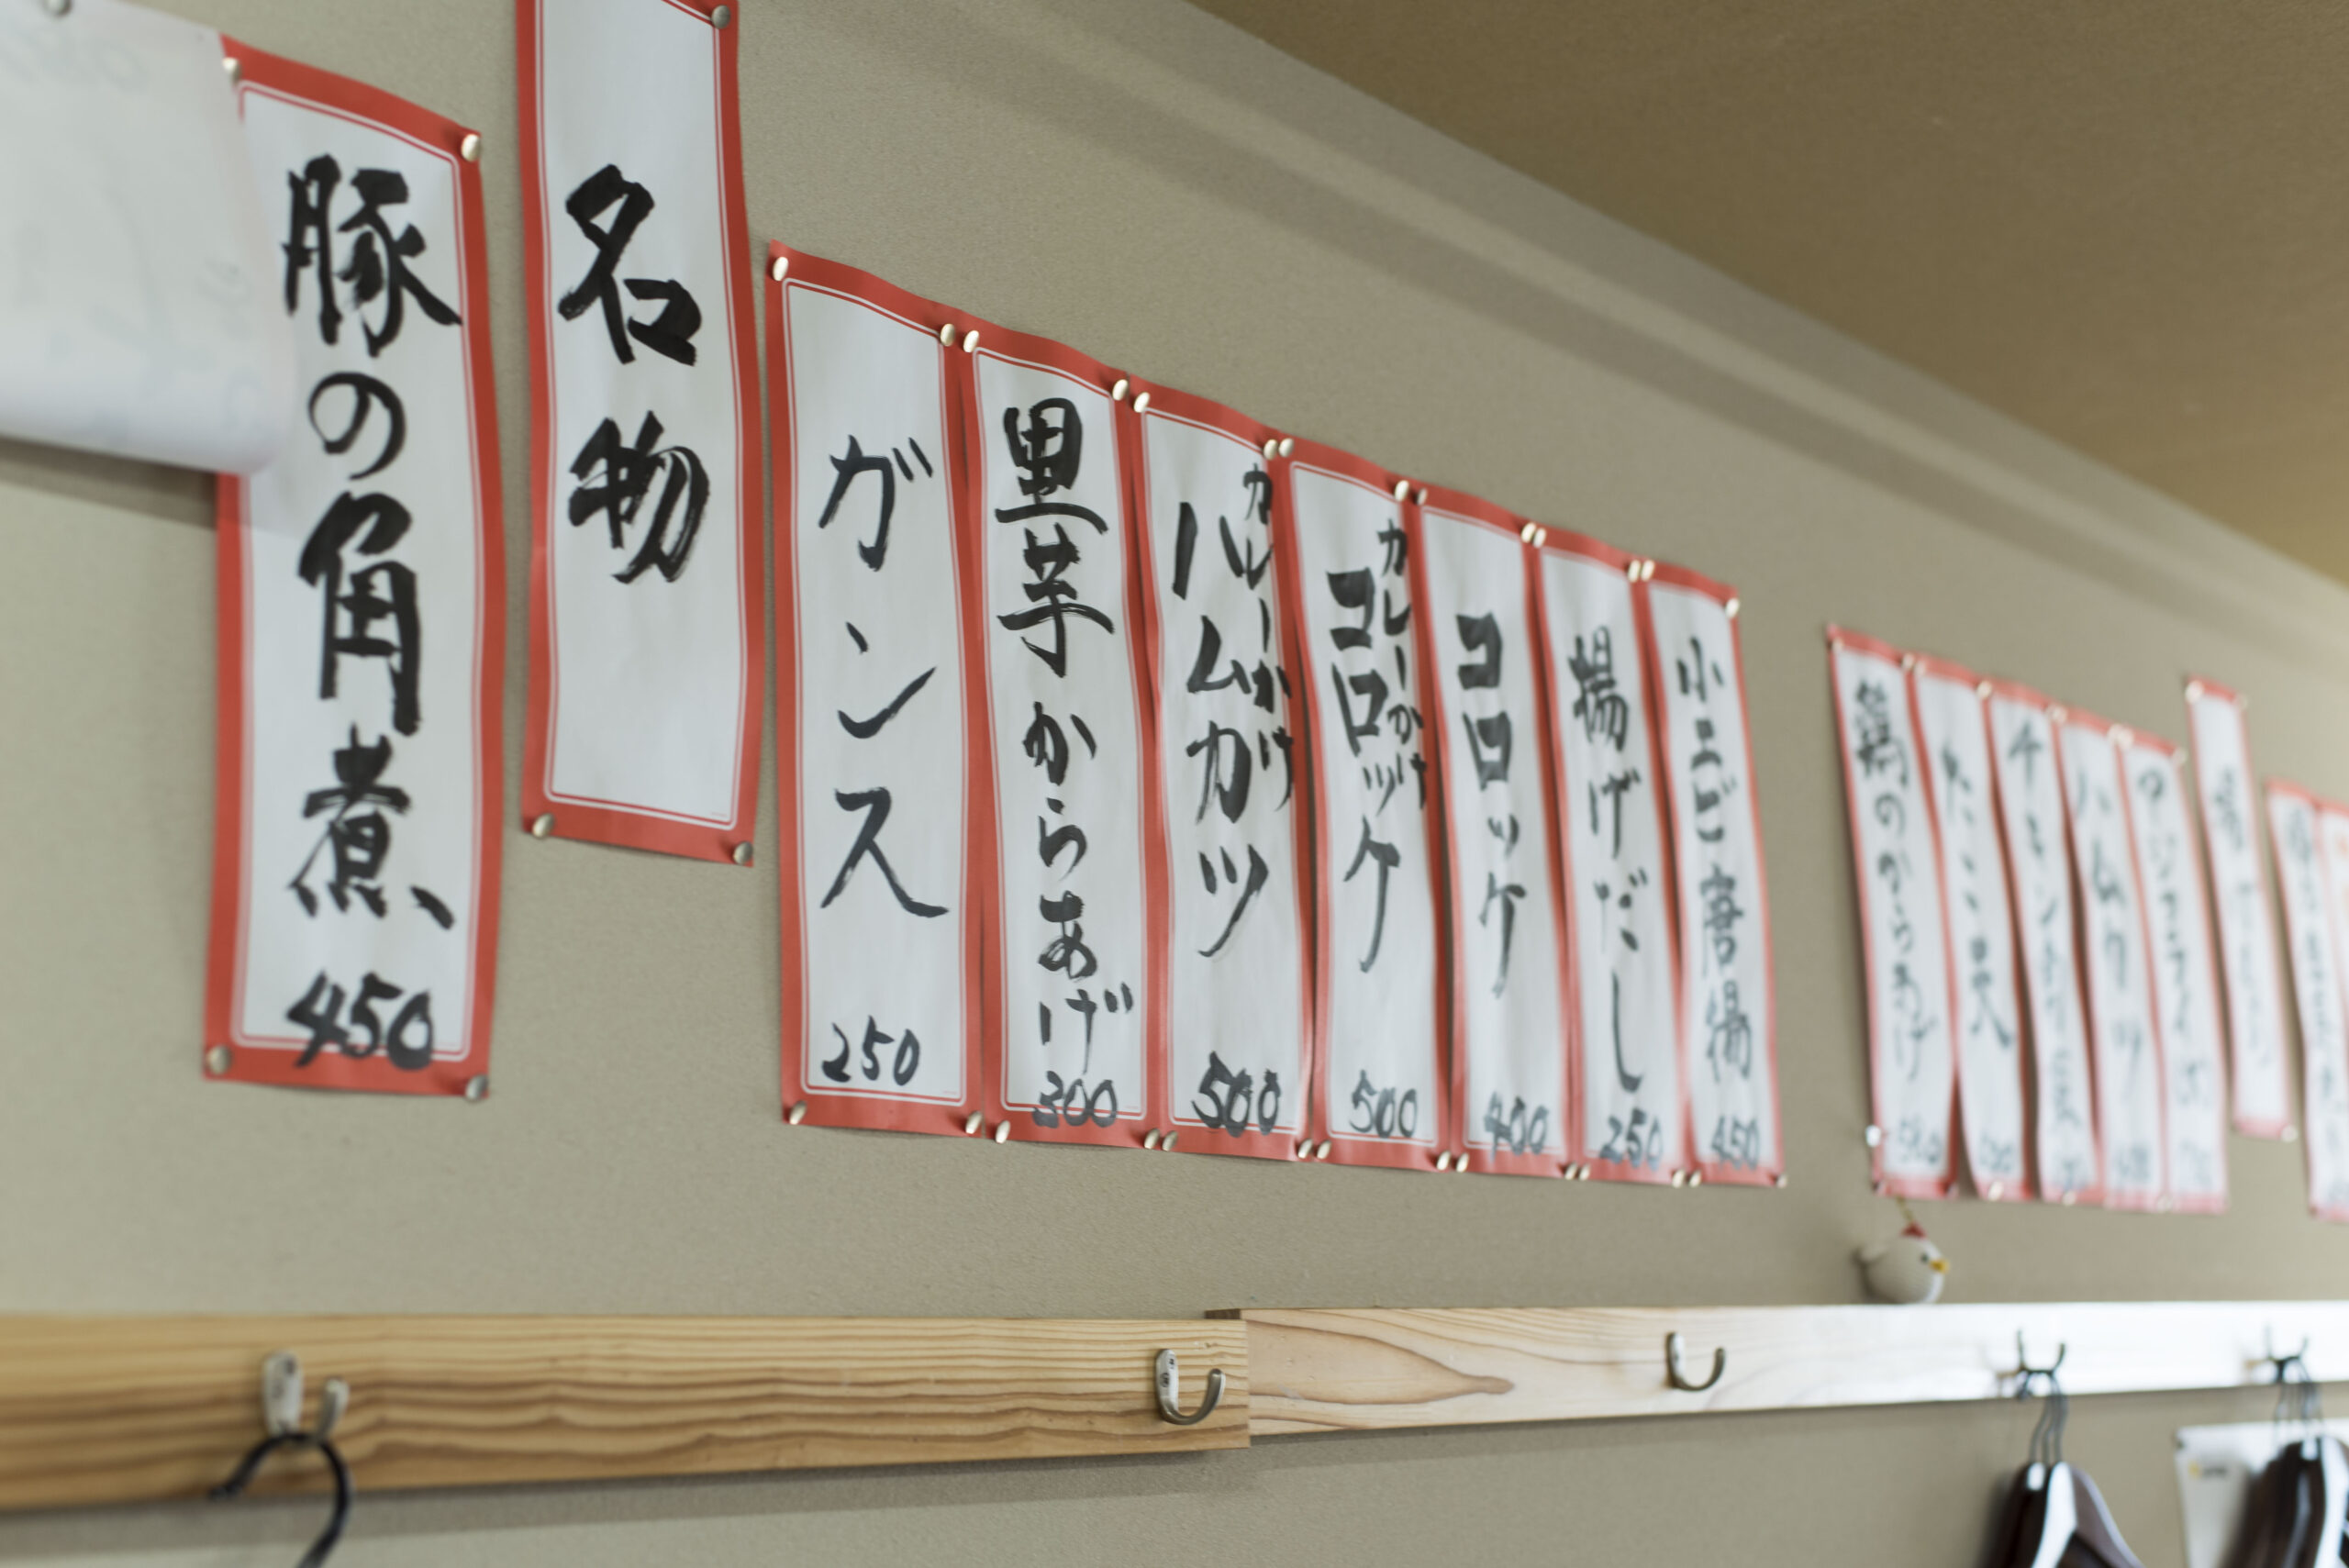 豚の角煮 450
名物
ガンス 250
里芋からあげ 300
カレーかけ
ハムカツ 500
カレーかけ
コロッケ 500
コロッケ 400
揚げだし 250
小エビ唐揚 450
鶏のからあげ
たこ天
チキンカツ
ハムカツ
アジフライ